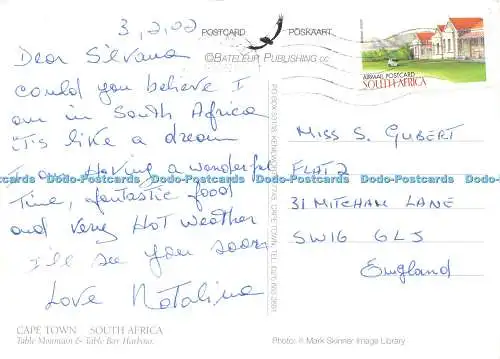 3, 2, 02
Dear Silvana
could you believe I
am in South Africa
it's like a dream
I am Having a wonderful
Time, fantastic food
and very Hot weather
I'll see you soon
Love Natalina
CAPE TOWN SOUTH AFRICA
Table Mountain & Table Bay Harbour.
POSTCARD POSKAART
©BATELEUR PUBLISHING CC
AIRMAIL POSTCARD
SOUTH AFRICA
MISS S. GUBERT
FLAT 2
31 MITCHAM LANE
SW16 6LJ
England
Photo: © Mark Skinner Image Library
Dodo-Postcards Dodo-Postcards Dodo-Postcards Dodo-Postcards Dodo-Postcards Dodo-Postcards